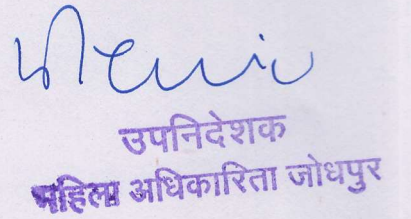 उपनिदेशक
महिला अधिकारिता जोधपुर